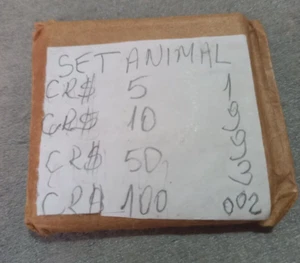 SET ANIMAL
CR$ 5 1
CR$ 10 9
CR$ 50 9
CR$ 100 3
002